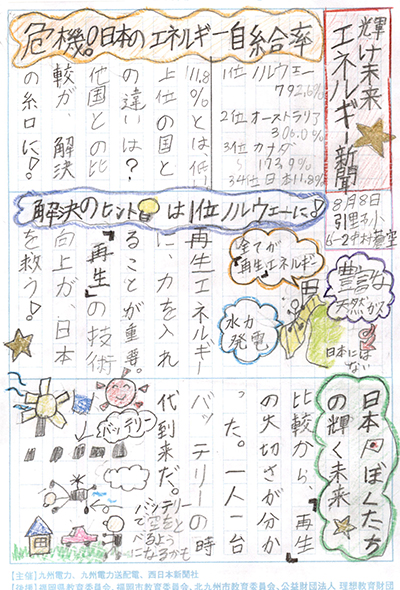 輝け未来
エネルギー新聞
8月8日
6-2
危機!日本のエネルギー自給率
1位ノルウェー
792.6%
2位オーストラリア
306.0%
3位カナダ
173.9%
34位日本11.8%
11.8%とは低い。
上位の国と
の違いは?
他国との比
較が、解決
の糸口に!
解決のヒントは1位ノルウェーに!
豊富な
天然ガス
日本には
ない
全てが
「再生エネルギー」
水力
発電
再生エネルギー
に、力を入れ
ることが重要。
『再生』の技術
向上が、日本
を救う!
日本とぼくたち
の輝く未来
比較から、『再生』
の大切さが分か
った。一人一台
バッテリーの時
代到来だ。
バッテリー
バッテリー
で空をと
べるよう
になるかも
【主催】九州電力、九州電力送配電、西日本新聞社
【後援】福岡県教育委員会、福岡市教育委員会、北九州市教育委員会、公益財団法人 理想教育財団